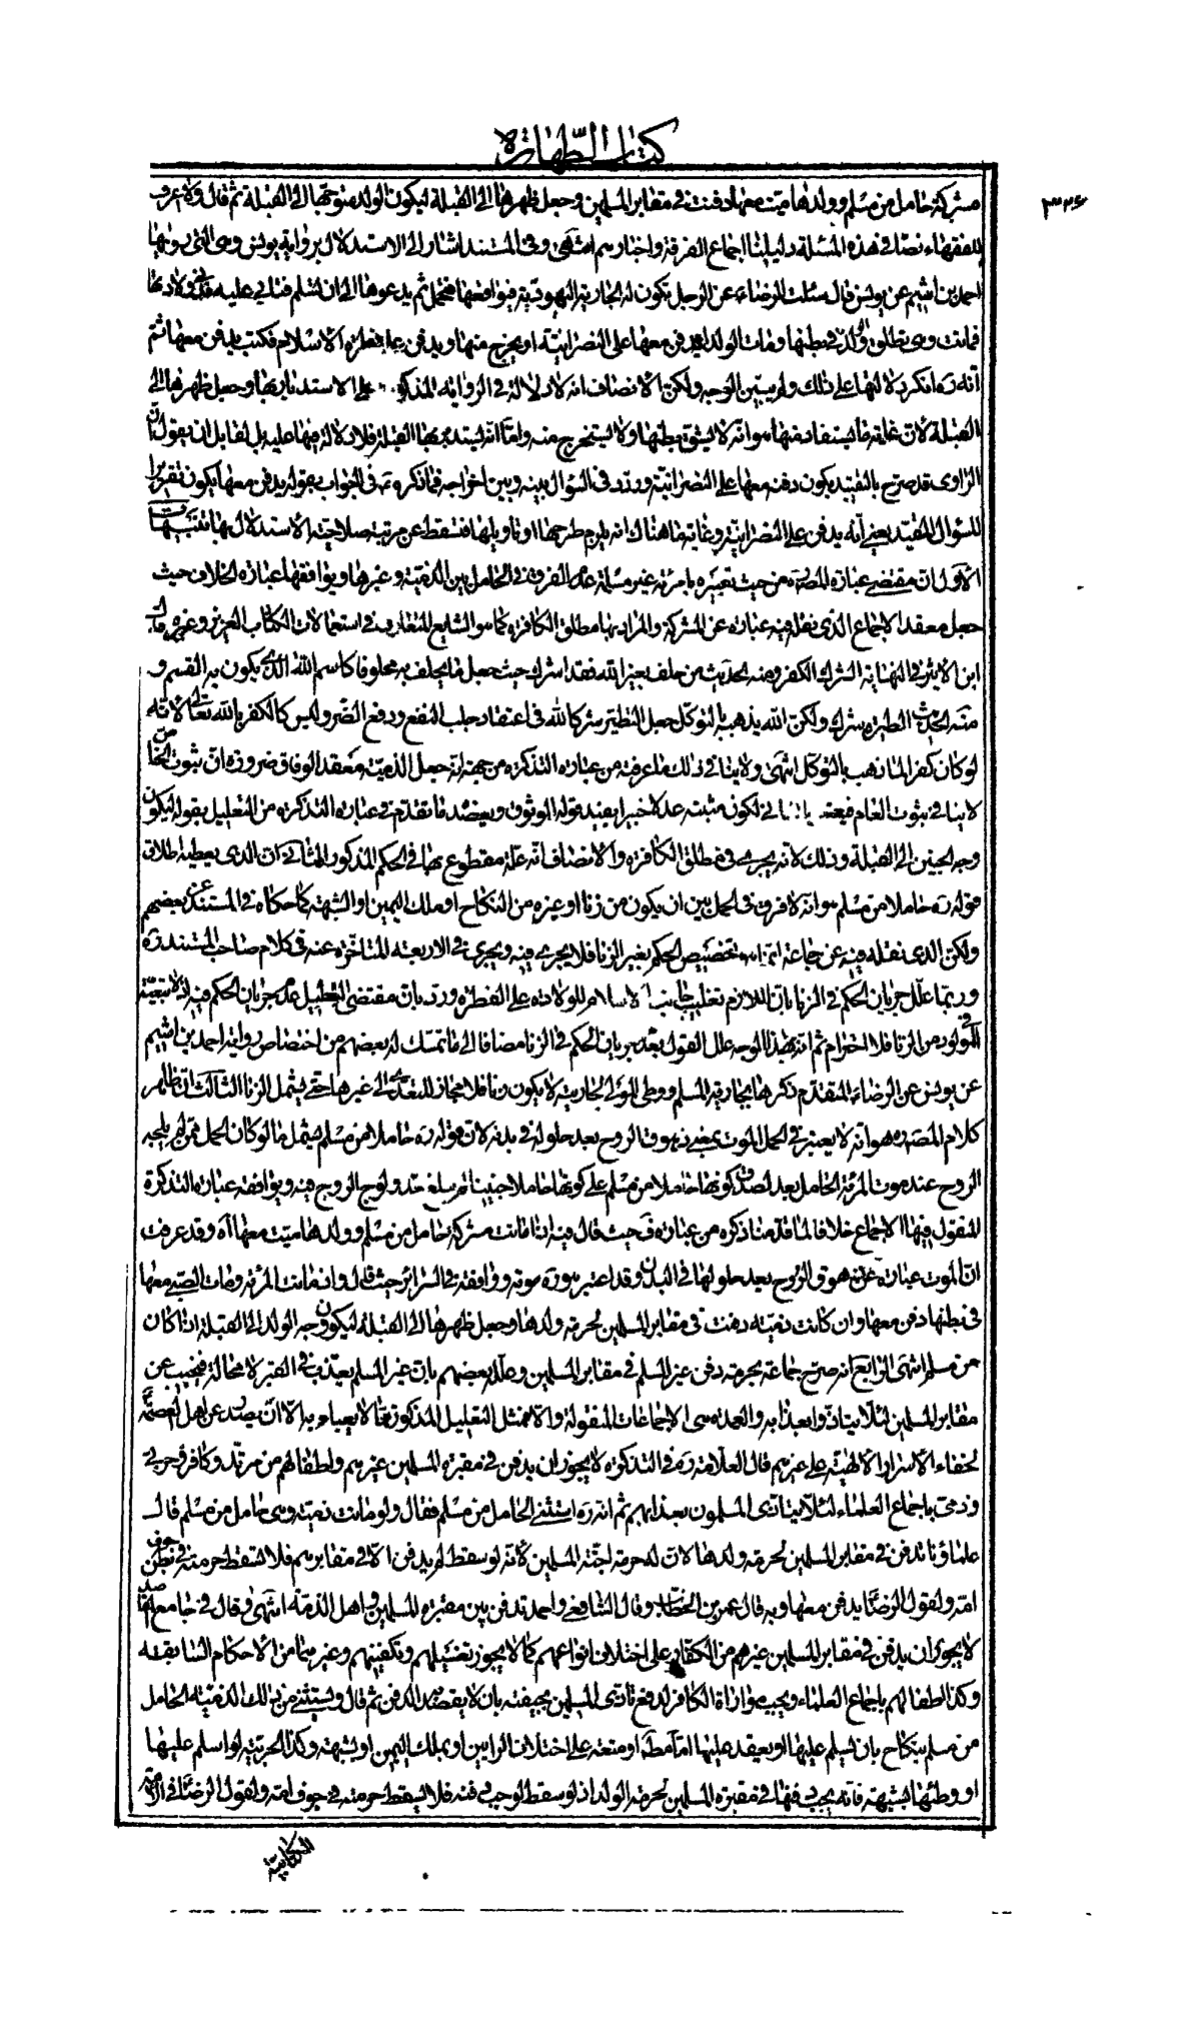 كتاب الطهارة
٣٣٤
مشركة حامل من مسلم وولدها ميت معها دفنت في مقابر المسلمين وجعل ظهرها الى القبلة ليكون الولد متوجها الى القبلة ثم قال ولا اعرف
للفقهاء نصا في هذه المسئلة دليلنا اجماع الفرقة واخبارهم انتهى وفي المستند اشار الى الاستدلال برواية يونس وهي التي رواها
احمد بن اشيم عن يونس قال سئلت الرضا عن الرجل تكون له الجارية اليهودية فيواقعها فتحمل ثم يدعوها الى ان تسلم فتابى عليه فدنى ولادتها
فماتت وهي تطلق والولد في بطنها ومات الولد ايدفن معها على النصرانية او يخرج منها ويدفن على فطرة الاسلام فكتب يدفن معها ثم
انه ره انكر دلالتها على ذلك ولم يبين الوجه ولكن الانصاف انه لا دلالة في الرواية المذكورة على الاستدبار بها وجعل ظهرها الى
القبلة لان غاية ما يستفاد منها هو انه لا يشق بطنها ولا يستخرج منه واما انه يستدبر بها القبلة فلا دلالة فيها عليه بل لقابل ان يقول ان
الراوى قد صرح بالتقييد بكون دفنه معها على النصرانية وردد في السؤال بينه وبين اخراجه فما ذكره في الجواب بقوله يدفن معها يكون تقريرا
للسؤال المقيد يعني انه يدفن على النصرانية وغاية ما هناك انه يلزم طرحها او تاويلها فتسقط عن مرتبة صلاحية الاستدلال بها تنبيهات
الاول ان مقتضى عبارة المص ره من حيث تعبيره بامرئة غير مسلمة عدم الفرق في الحامل بين الذمية وغيرها ويوافقها عبارة الخلاف حيث
جعل معقد الاجماع الذي نقله فيه عبارة عن المشركة والمراد بها مطلق الكافرة كما هو الشايع المتعارف في استعمالات الكتاب العزيز وغيره قال
ابن الاثير في النهاية الشرك الكفر ومنه الحديث من حلف بغير الله فقد اشرك حيث جعل ما يحلف به محلوفا كاسم الله الذي يكون به القسم و
منه الحديث الطيرة شرك ولكن الله يذهبه بالتوكل جعل التطير شركا لله في اعتقاد جلب النفع ودفع الضرر وليس كالكفر بالله تعالى لانه
لو كان كفرا لما ذهب بالتوكل انتهى ولا ينافي ذلك ما عرفته من عبارة التذكرة من جهة انه جعل الذمية معقد الوفاق ضرورة ان ثبوت الخاص
لا ينافي ثبوت العام فيعتد لكون مثبته عدلا خبيرا يفيد قوله الوثوق ويعضد ما تقدم في عبارة التذكرة من التعليل بقوله ليكون
وجه الجنين الى القبلة وذلك لانه يجرى في مطلق الكافرة والانصاف انه علة مقطوع بها في الحكم المذكور الثاني ان الذي يعطيه اطلاق
قوله ره حاملا من مسلم هو انه لا فرق في الحمل بين ان يكون من زنا او غيره من النكاح او ملك اليمين او الشبهة كما حكاه في المستند عن بعضهم
ولكن الذي نقله فيه عن جماعة تخصيص الحكم بغير الزنا فلا يجرى فيه ويجرى في الاربعة المتاخرة عنه في كلام صاحب المستند ره
وربما علل جريان الحكم في الزنا بان اللازم تغليب جانب الاسلام للولادة على الفطرة ورد بان مقتضى التعليل عدم جريان الحكم فيه اذ لا تبعية
في المولود من الزنا فلا احترام ثم انه بهذا الوجه علل القول بعدم جريان الحكم في الزنا مضافا الى ما تمسك له بعضهم من اختصاص رواية احمد بن اشيم
عن يونس عن الرضا المتقدم ذكرها بجارية المسلم ووطى المولى لجاريته لا يكون زنا فلا مجاز للتعدى الى غيرها حتى يشمل الزنا الثالث ان ظاهر
كلام المص ره هو انه لا يعتبر في الحمل الموت بمعنى زهوق الروح بعد حلوله في بدنه لان قوله ره حاملا من مسلم يشمل ما لو كان الحمل ممن لم يلجه
الروح عند موت المرئة الحامل بعد لصدق كونها حاملا من مسلم على كونها حاملا جنينا لم يبلغ حد ولوج الروح فيه ويوافقه عبارة التذكرة
المنقول فيها الاجماع خلافا لما قدمنا ذكره من عبارة ف حيث قال فيه اذا ماتت مشركة حامل من مسلم وولدها ميت معها اه وقد عرفت
ان الموت عبارة عن زهوق الروح بعد حلولها في البدن وقد اعتبر هو ره موته ووافقه في السرائر حيث قال واذا ماتت المرئة ومات الصبي معها
في بطنها دفن معها وان كانت ذمية دفنت في مقابر المسلمين لحرمة ولدها وجعل ظهرها الى القبلة ليكون وجه الولد الى القبلة اذا كان
من مسلم انتهى الرابع انه صرح جماعة بحرمة دفن غير المسلم في مقابر المسلمين وعلله بعضهم بان غير المسلم يعذب في القبر لا محالة فيجنب عن
مقابر المسلمين لئلا يتاذوا بعذابه والعمدة هي الاجماعات المنقولة والا فمثل التعليل المذكور مما لا يعباء به الا ان يصدر عن اهل العصمة
لخفاء الاسرار الالهية على غيرهم قال العلامة ره في التذكرة لا يجوز ان يدفن في مقبرة المسلمين غيرهم ولطفالهم من مرتد وكافر حربي
وذمي باجماع العلماء لئلا يتاذى المسلمون بعذابهم ثم انه ره استثنى الحامل من مسلم فقال ولو ماتت ذمية وهي حامل من مسلم قال
علماؤنا تدفن في مقابر المسلمين لحرمة ولدها لان له حرمة اجنة المسلمين كانه لو سقط لم يدفن الا في مقابرهم فلا تسقط حرمته في جوف
امه ولقول الرضا يدفن معها وبه قال عمر بن الخطاب وقال الشافعي واحمد تدفن بين مقبرة المسلمين واهل الذمة انتهى وقال في جامع المقاصد
لا يجوز ان يدفن في مقابر المسلمين غيرهم من الكفار على اختلاف انواعهم كما لا يجوز تغسيلهم وتكفينهم وغيرهما من الاحكام السابقة
وكذا اطفالهم باجماع العلماء ويجب مواراة الكافر لدفع تاذى المسلمين بجيفته بان لا يقصد الدفن ثم قال ويستثنى من ذلك الذمية الحامل
من مسلم بنكاح بان يسلم عليها او يعقد عليها اما مطلقا او متعة على اختلاف الرايين او بملك اليمين او بشبهة وكذا الحربية لو اسلم عليها
او وطئها بشبهة فانه يجب دفنها في مقبرة المسلمين لحرمة الولد اذ لو سقط لوجب دفنه فلا يسقط حرمته في جوف امه ولقول الرضا في الامة
الكتابية